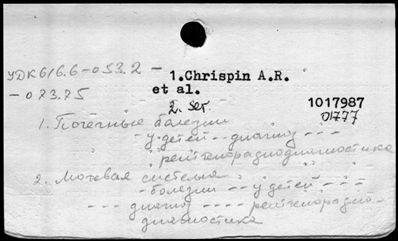 УДК 616.6-053.2 -
- 073.75
1.Chrispin A.R.
et al.
2. ser.
1017987
01777
1. Почечные болезни
- у детей -- диагноз ---
" рентгенорадиодиагностика
2. Мочевая система
- болезни -- у детей ---
--- диагноз ---- рентгенорадио-
диагностика